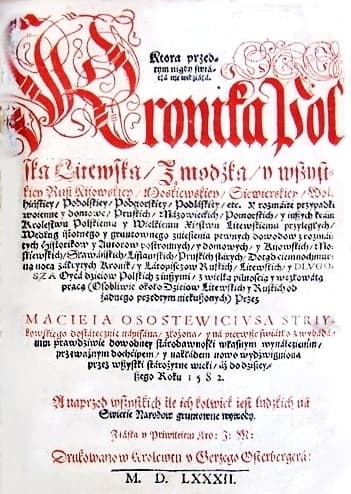 Ktora przed-
tym nigdy świá-
tłá nie widziáłá.
Kronika Pol
ska Litewska / Zmodźka / y wszyst-
kiey Rusi Kijowskiey / Moskiewskiey / Siewierskiey / Wol-
hińskiey / Podolskiey / Podgorskiey / Podláskiey / etc. Y rozmáite przypadki
woienne y domowe / Pruskich / Mázowieckich / Pomorskich / y inszych kráin
Krolestwu Polskiemu y Wielkiemu Xięstwu Litewskiemu przyległych /
Według istotnego y gruntownego zniesienia pewnych dowodow z rozmái-
tych Historikow y Autorow postronnych / y domowych / y Kijowskich / Mo-
skiewskich / Sławáńskich / Liflantskich / Pruskich stárych / Dotąd ciemnochmur-
ną nocą zákrytych Kronik / y Látopiszcow Ruskich / Litewskich / y DLVGO-
SZA Oycá dzieiow Polskich z inszymi / z wielką pilnością y węzłowátą
pracą (Osobliwie około Dzieiow Litewskich y Ruskich od
żadnego przedtym niekuszonych) Przez
MACIEIA OSOSTEWICIVSA STRIY-
kowskiego dostátecznie nápisána / złożona / y ná pierwsze świátło z wybádá-
nim prawdziwie dowodney stárodawności własnym wynálezienim /
przeważnym dochćipem / y nakłádem nowo wydźwigniona
przez wszystki stárożytne wieki / áż do dzisiey-
szego Roku 1582.
A naprzod wszystkich ile ich kolwiek iest ludzkich ná
Swiecie Narodow gruntowne wywody.
Z łáską y Priwileiem Kro: J: M:
Drukowano w Krolewcu v Gerzego Osterbergerá:
M. D. LXXXII.